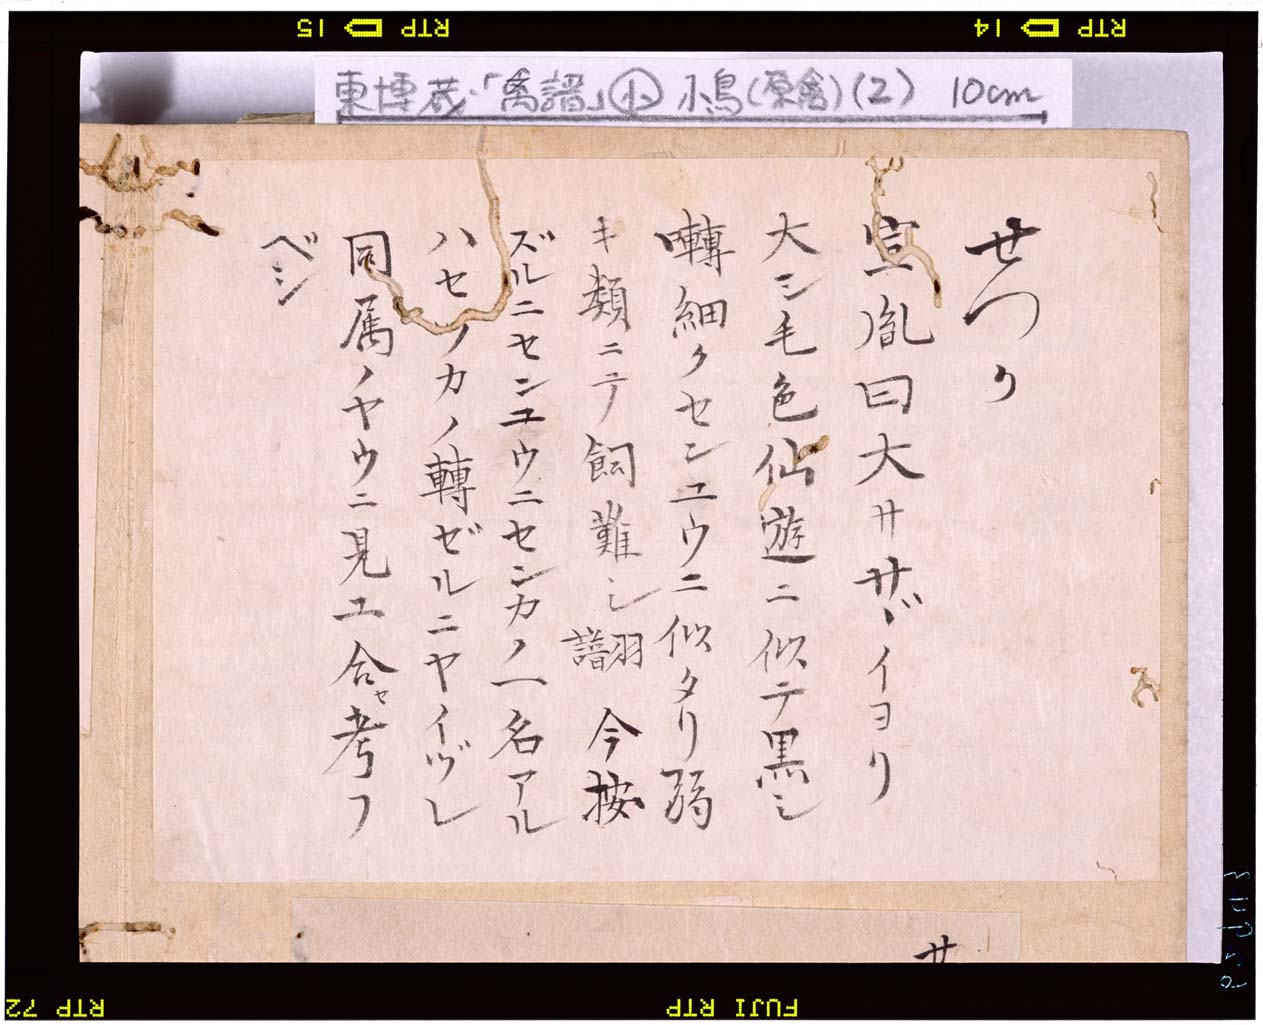 RTP 14
RTP 15
東博蔵・「禽譜」㊥小鳥(原舎)(2) 10cm
せつか
宣胤曰大ササヾイヨリ
大シ毛色仙遊ニ似テ黒シ
囀細クセンユウニ似タリ弱
キ類ニテ飼難シ 翻譜 今按
ズルニセンユウニセンカノ一名アル
ハセツカノ轉ゼルニヤイヅレ
同属ノヤウニ見ユ合セ考フ
ベシ
サ
FUJI RTP
RTP 72